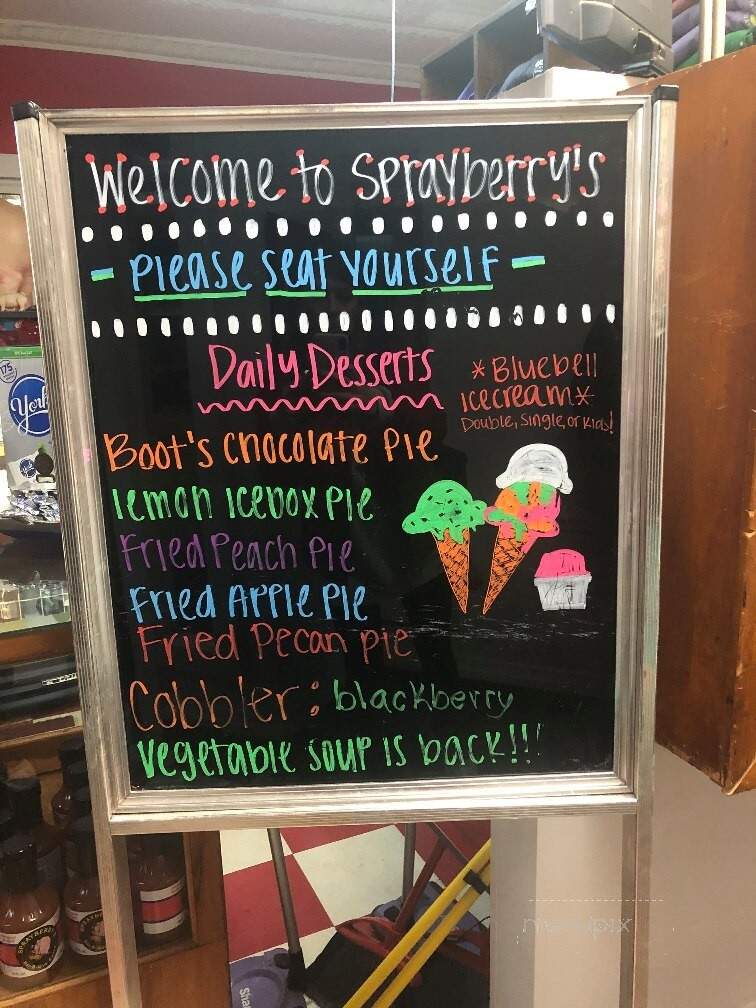 Welcome to Sprayberry's
- Please seat yourself -
Daily Desserts
*Bluebell
Icecream*
Double, Single, or Kids!
Boot's Chocolate Pie
lemon Icebox Pie
Fried Peach Pie
Fried Apple Pie
Fried Pecan pie
Cobbler: blackberry
Vegetable soup is back!!!
175
York
SPRAYBERRY'S
Sha